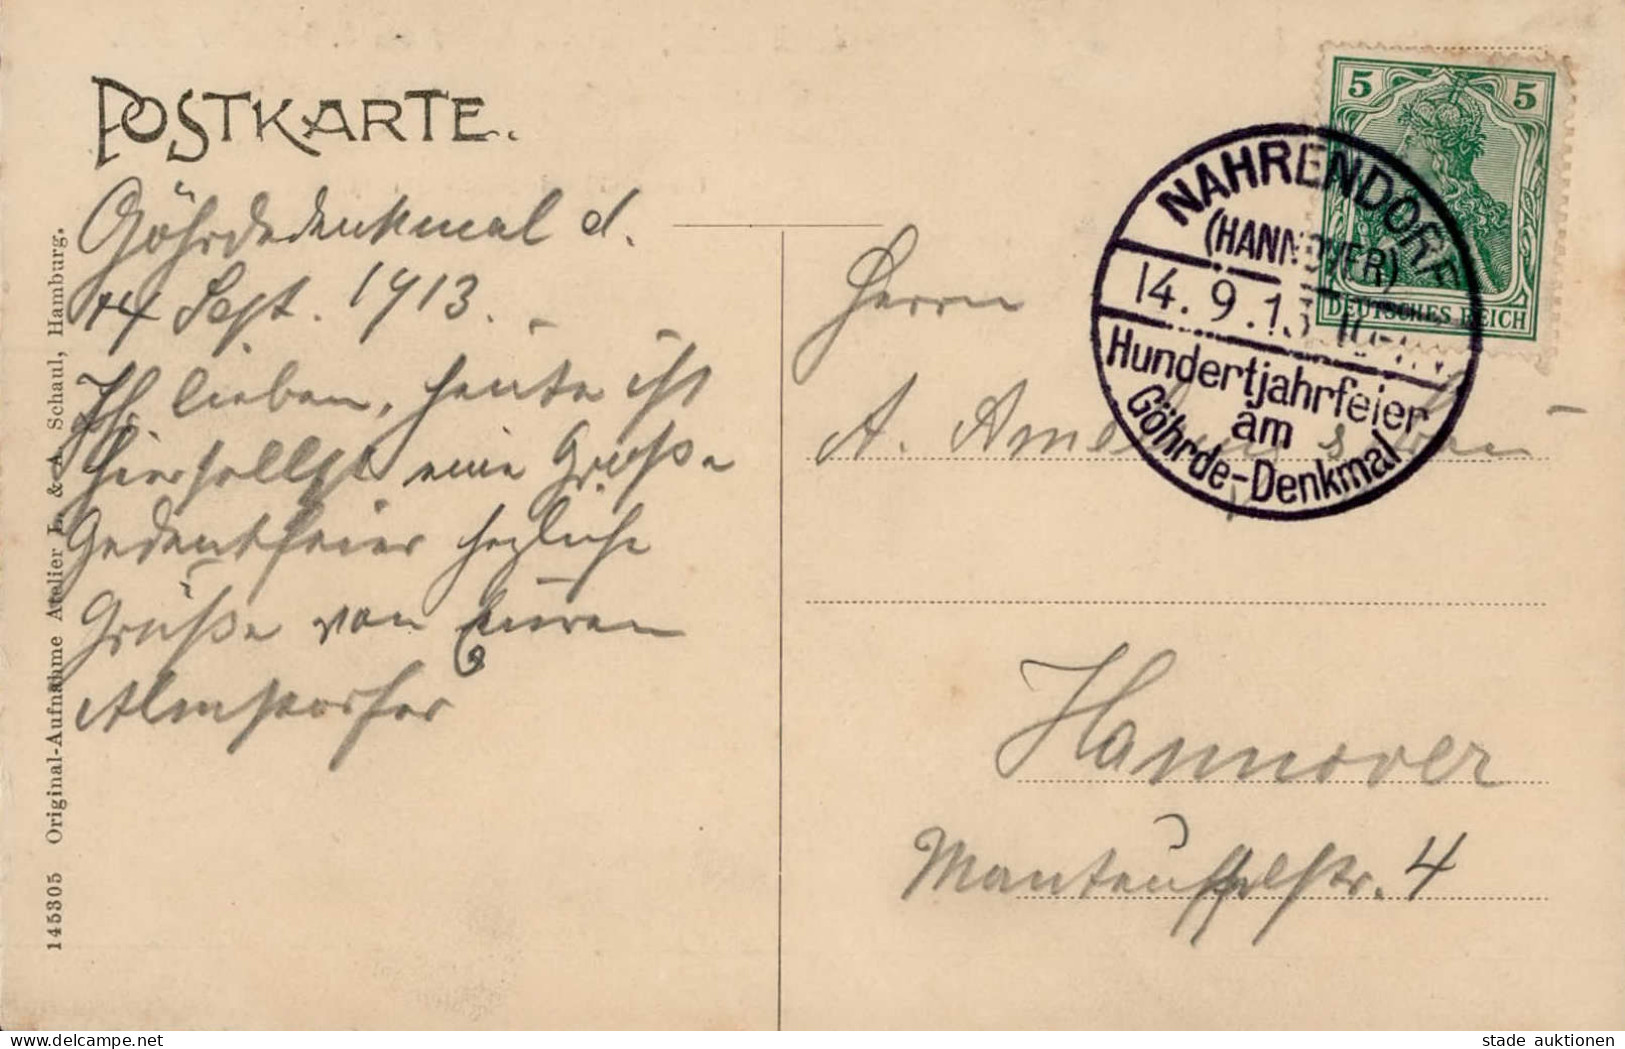 POSTKARTE.
Göhrdedenkmal d.
14 Sept. 1913.
Ih. lieben, heute ist
hierselbst eine Große
Gedenkfeier herzliche
Grüße von Euren
Herrn
A.
Hannover
Manteuffelstr. 4
5 5
DEUTSCHES REICH
NAHRENDORF
(HANNOVER)
14. 9. 13
Hundertjahrfeier
am
Göhrde-Denkmal
145305 Original-Aufnahme Atelier L. & A. Schaul, Hamburg.
www.delcampe.net
stade auktionen